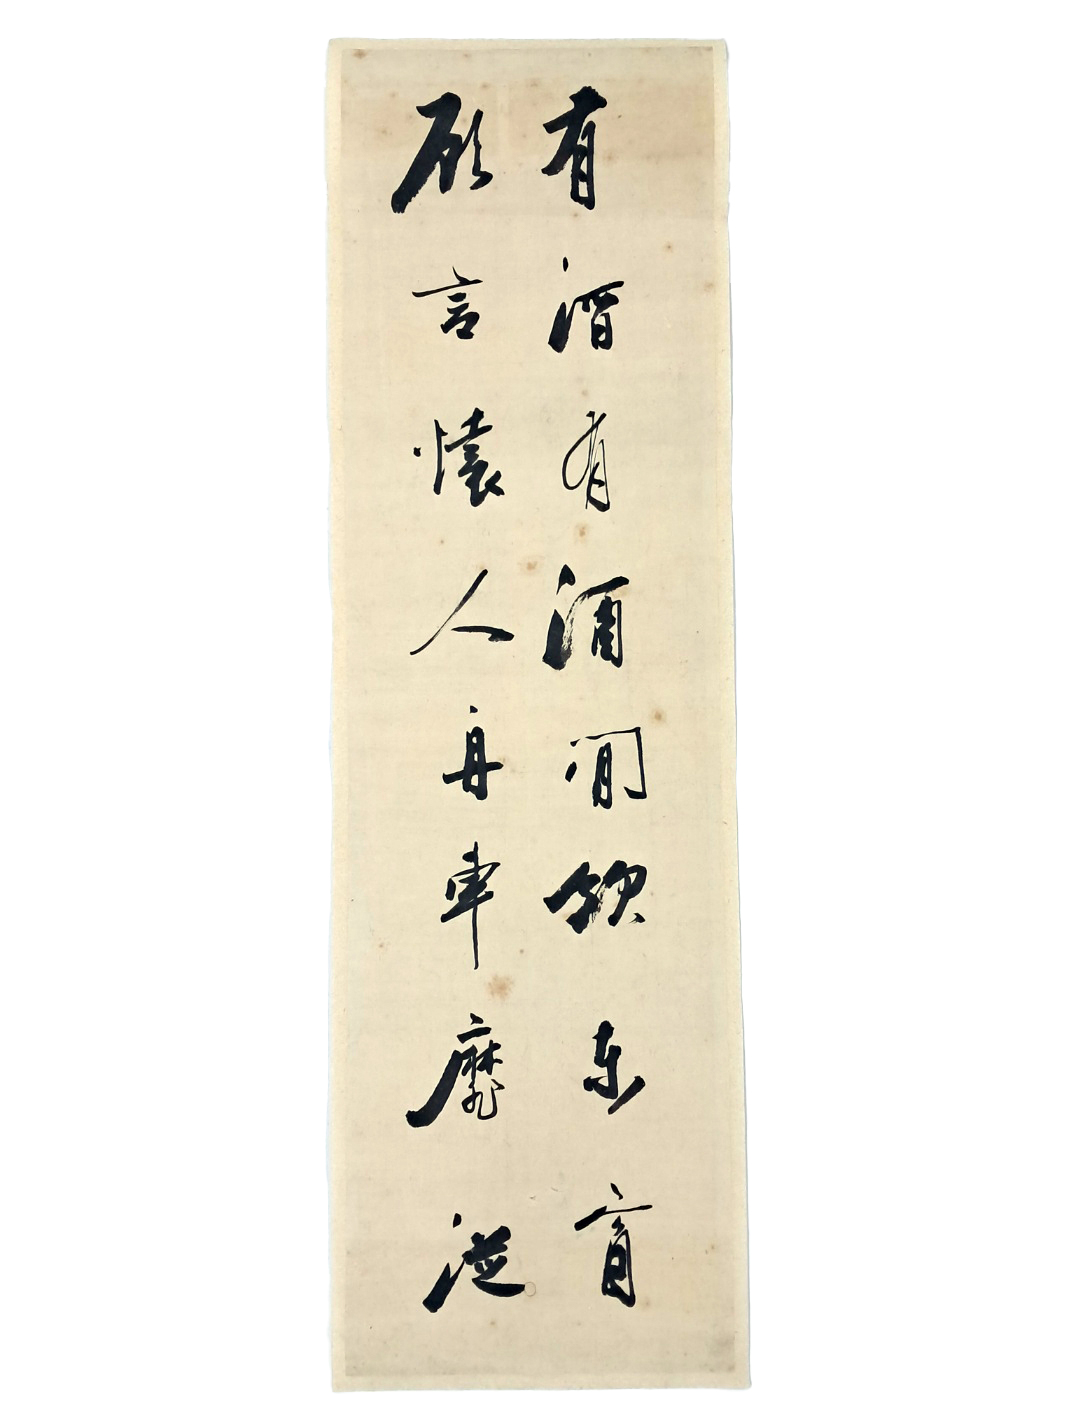 有酒有酒閒飲東窗
願言懷人舟車靡從